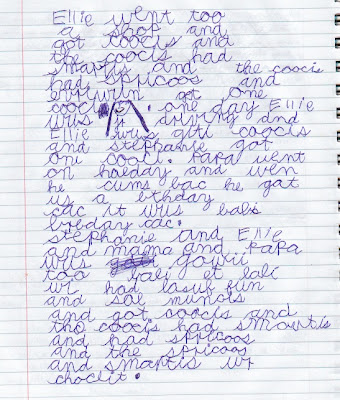 Ellie went too
a shop and
got coocis and
the coocis had
smartis and the coocis
had spricoos and
evrwin got one
cooci. one day Ellie
wus driving and
Ellie wus giti coocis
and stephanie got
oni cooci. Papa went
on holeday and wen
he cums bac he gat
us a bthday
cac it wus babs
bthday cac.
stephanie and Ellie
and mama and Papa
was gowii
too bali et bali
wi had lasuf fun
and sal munois
and got coocis and
the coocis had smartis
and had spricoos
and the spricoos
and smartis wr
choclit.